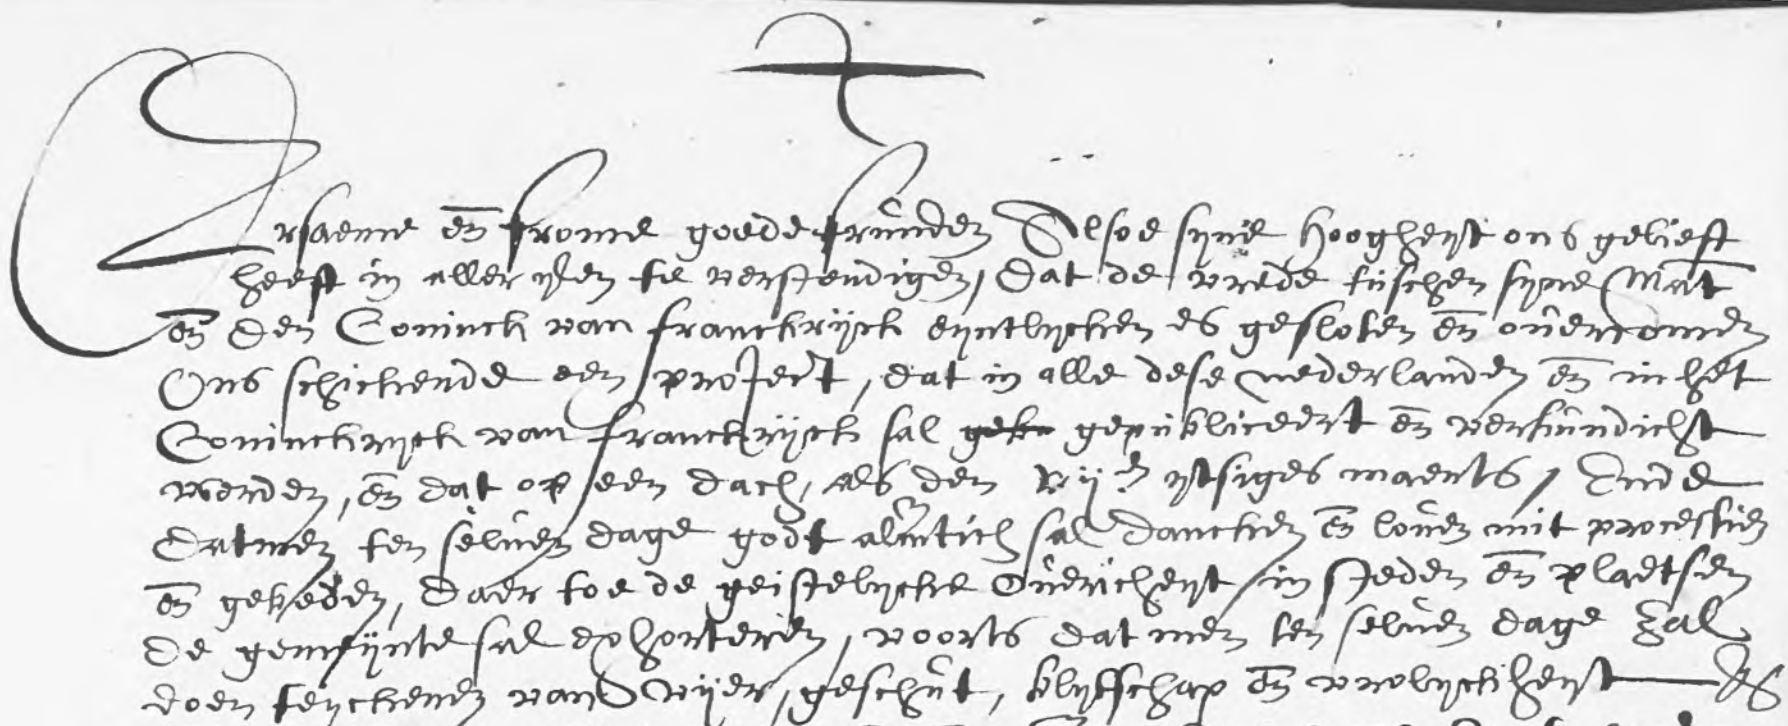 Ersaeme en̄ frome goede frunden Alsoe syne hoogheyt ons gelieft
heeft in aller ylen te verstendigen, Dat de vrede tusschen syne Mat
en̄ den Coninck van franckryck eyntlycken es gesloten en̄ overcomen
Ons schickende een project, dat in alle dese nederlanden en̄ in het
Coninckryck van franckryck sal gepubliceert en̄ verkundicht
werden, en̄ dat op een dach, als den ytsiges maents, Ende
Datmen ten selven dage godt almtich sal dancken en̄ loven mit processien
en̄ gebeden, daer toe de geistelycke Overicheyt in steden en̄ plaetsen
de gemeynte sal exhorteren, voorts datmen ten selven dage zal
doen teyckenen van vyer, geschut, blytschap en̄ vrolyckheyt Als